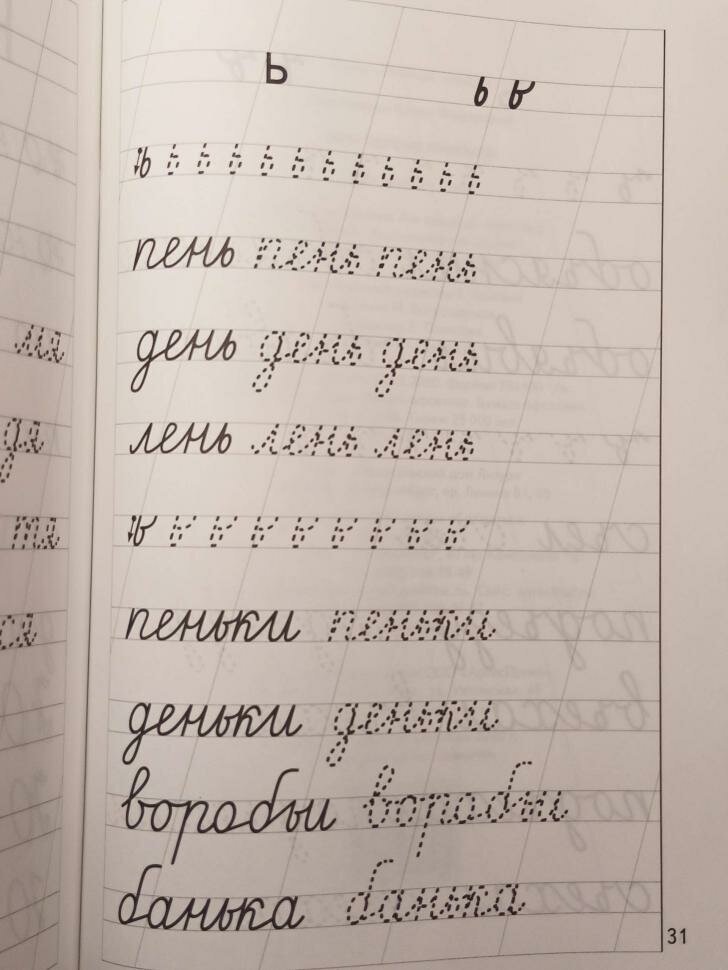 ь ь ь
ь ь ь ь ь ь ь ь ь ь ь
пень пень пень
день день день
лень лень лень
ь ь ь ь ь ь ь ь ь
пеньки пеньки
деньки деньки
воробьи воробьи
банька банька
31